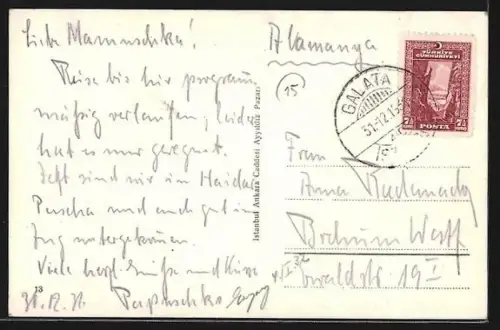 Liebe Mamuschka!
Reise bis hir programm
mäßig verlaufen, leider
hat es nur geregnet.
Jetzt sind wir in Haidar
Pascha und auch gut im
Zug untergekommen.
Viele herzl. Grüße und Küsse
30.12.31 Papuschka
13
Istanbul Ankara Caddesi Ayyıldız Pazarı
Alamanya
15
GALATA
TÜRKİYE
CÜMHURİYETİ
7½ 7½
POSTA
Frau
Anna
Bochum Westf
19 I